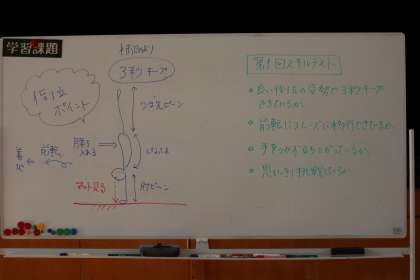 学習課題
3秒キープ
倒立
ポイント
つま先ピーン
腰を
入れる
しめる
前転
着地
マット見る
肘ピーン
第1回スキルテスト
・良い倒立の姿勢で3秒キープ
できているか。
・前転にスムーズに移行できているか。
・手をつかず立ち上がっているか。
・思いきり挑戦しているか